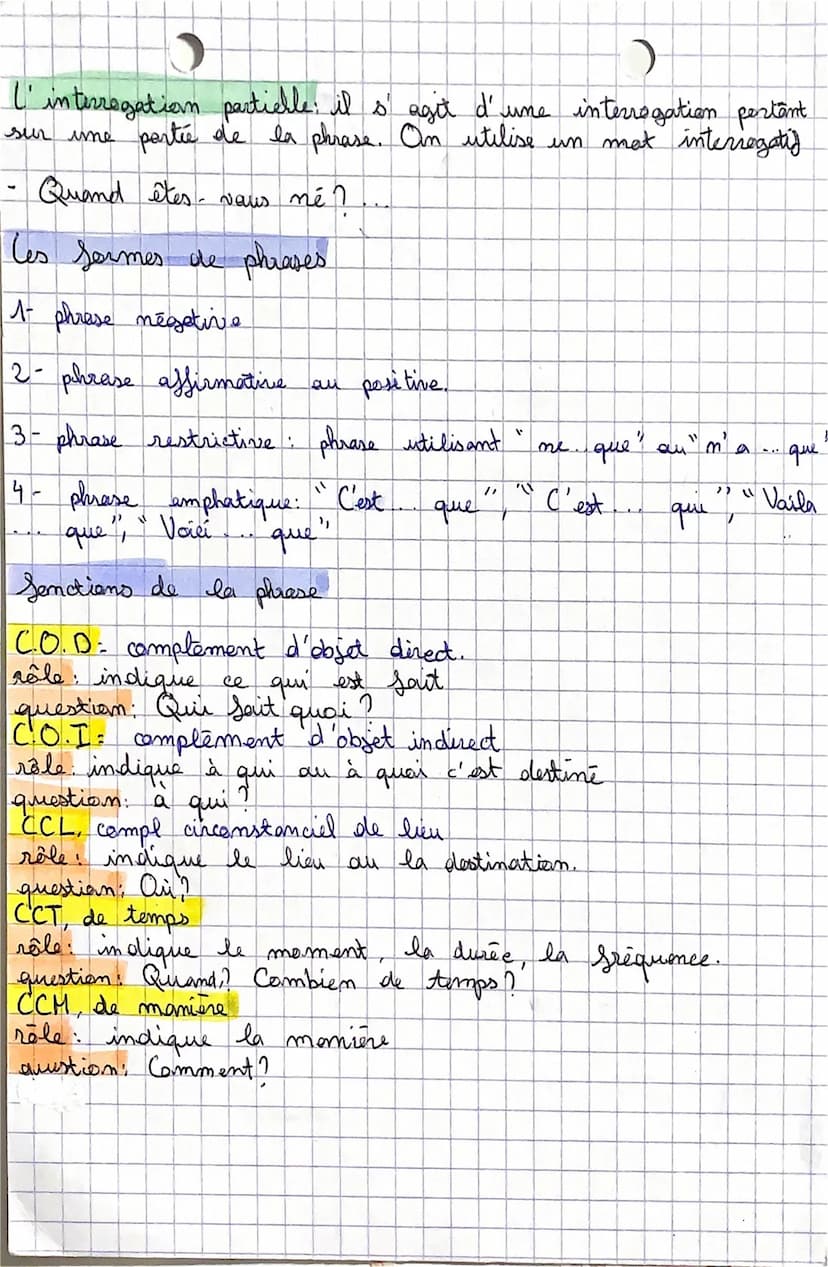 L'interrogation partielle: il s'agit d'une interrogation portant
sur une partie de la phrase. On utilise un mot interrogatif
- Quand êtes-vous né ? ...
les formes de phrases
1- phrase négative
2- phrase affirmative ou positive.
3- phrase restrictive : phrase utilisant "ne... que" ou "n'a ... que"
4- phrase emphatique: "C'est ... que", "C'est ... qui", "Voila
... que", "Voici ... que"
fonctions de la phrase
C.O.D: complément d'objet direct.
rôle : indique ce qui est fait
question: Qui fait quoi ?
C.O.I: complément d'objet indirect
rôle: indique à qui ou à quoi c'est destiné
question: à qui ?
CCL, compl circonstanciel de lieu
rôle : indique le lieu ou la destination.
question: Où ?
CCT, de temps
rôle: indique le moment, la durée, la fréquence.
question: Quand? Combien de temps ?
CCM, de manière
rôle : indique la manière
question: Comment ?